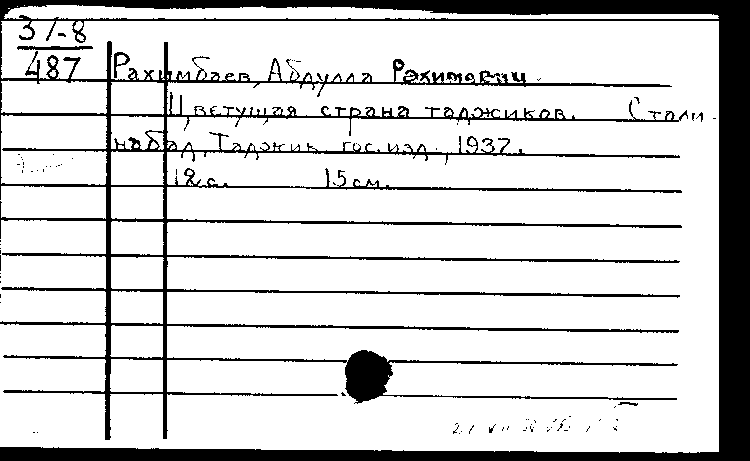 31-8
487
Рахимбаев, Абдулла Рахимович.
Цветущая страна таджиков. Стали-
набад, Таджик. гос. изд., 1937.
12 с. 15 см.